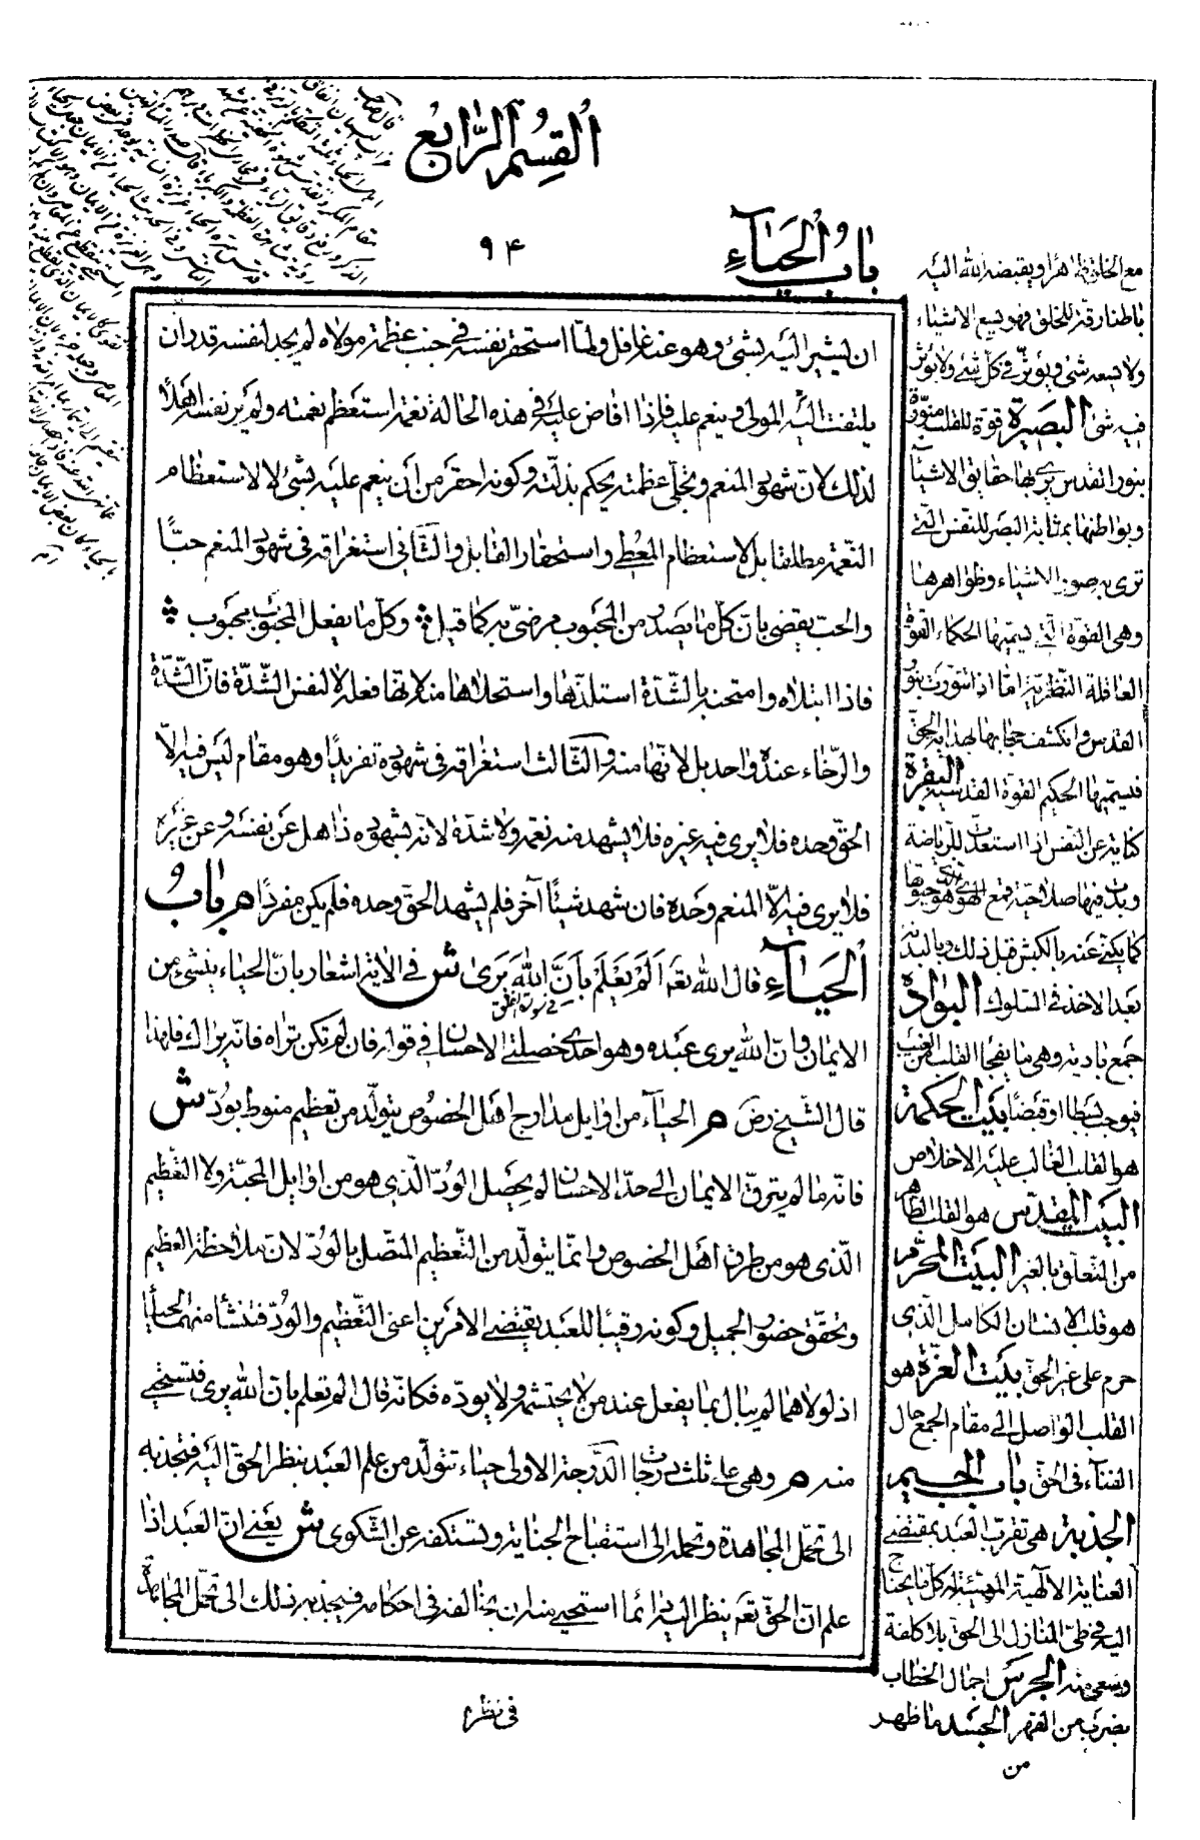 القسم الرابع
باب الحياء
٩٤
ان يشير اليه بشئ وهو عنه غافل ولما استحقر نفسه في جنب عظمة مولاه لم يجد لنفسه قدرا ان
يلتفت اليه المولى وينعم عليه فاذا افاض عليه في هذه الحالة نعمة استعظم نعمته ولم ير نفسه اهلا
لذلك لان شهود المنعم وتجلى عظمته يحكم بذلته وكونه احقر من ان ينعم عليه بشئ لا لاستعظام
النعمة مطلقا بل لاستعظام المعطى واستحقار القابل والثانى استغراقه فى شهود المنعم حبّا
والحب يقضى بان كل ما يصدر من المحبوب مرضىّ به كما قيل وكل ما يفعل المحبوب محبوب
فاذا ابتلاه وامتحنه بالشدة استلذها واستحلاها منه لانها فعله لا لنفس الشدة فان الشدة
والرخاء عنده واحد بل لانها منه والثالث استغراقه فى شهوده تفريدا وهو مقام ليس فيه الا
الحق وحده فلا يرى فيه غيره فلا يشهد منه نعمة ولا شدة لانه بشهوده ذاهل عن نفسه وعن غيره
فلا يرى فيه الا المنعم وحده فان شهد شيئا آخر فلم يشهد الحق وحده فلم يكن مفردا م باب
الحياء قال الله تعه الم يعلم بان الله يرى ش فى الآية اشعار بان الحياء ينشئ من
الايمان وان الله يرى عبده وهو احدى خصلتى الاحسان فى قوله فان لم تكن تراه فانه يراك فلهذا
قال الشيخ رض م الحياء من اوايل مدارج اهل الخصوص يتولد من تعظيم منوط بودّ ش
فانه ما لم يترق الايمان الى حد الاحسان لم يحصل الودّ الذى هو من اوايل المحبة ولا التعظيم
الذى هو من طرق اهل الخصوص وانما يتولد من التعظيم المتصل بالود لان ملاحظة العظيم
وتحقق حضور الجميل وكونه رقيبا للعبد يقتضى الامرين اعنى التعظيم والود فنشأ منهما الحياء
اذ لولاهما لم يبال بما يفعل عند من لا يحتشمه ولا يوده فكانه قال الم تعلم بان الله يرى فتستحيى
منه م وهى على ثلث درجات الدرجة الاولى حياء تتولد من علم العبد بنظر الحق اليه فتجذبه
الى تحمل المجاهدة وتحمله الى استقباح الجناية وتستكفه عن الشكوى ش يعنى ان العبد اذا
علم ان الحق تعه ينظر اليه دائما استحيى منه ان يخالفه فى احكامه فيجذبه ذلك الى تحمل المجاهدة
فى نظره
مع الخلق ظاهرا ويقبضه الله اليه
باطنا رقة للخلق فهو يسع الاشياء
ولا يسعه شئ ويؤثر فى كل شئ ولا يؤثر
فيه شئ البصيرة قوة للقلب منورة
بنور القدس يرى بها حقايق الاشياء
وبواطنها بمثابة البصر للنفس التى
ترى به صور الاشياء وظواهرها
وهى القوة التى يسميها الحكماء القوة
العاقلة النظرية اما اذا تنورت بنور
القدس وانكشف حجابها بهداية الحق
فيسميها الحكيم القوة القدسية البقرة
كناية عن النفس اذا استعدت للرياضة
وبدت فيها صلاحية قمع الهوى الذى هو حيوتها
كما يكنى عنه بالكبش قبل ذلك وبالبدنة
بعد الاخذ فى السلوك البواده
جمع بادية وهى ما يفجأ القلب من الغيب
فيوجب بسطا او قبضا بيت الحكمة
هو القلب الغالب عليه الاخلاص
البيت المقدس هو القلب الطاهر
من التعلق بالغير البيت المحرم
هو قلب الانسان الكامل الذى
حرم على غير الحق بيت العزة هو
القلب الواصل الى مقام الجمع حال
الفناء فى الحق باب الجيم
الجذبة هى تقرب العبد بمقتضى
العناية الالهية المهيئة له كل ما يحتاج
اليه فى طى المنازل الى الحق بلا كلفة
وسعى منه الجرس اجمال الخطاب
بضرب من القهر الجسد ما ظهر
من